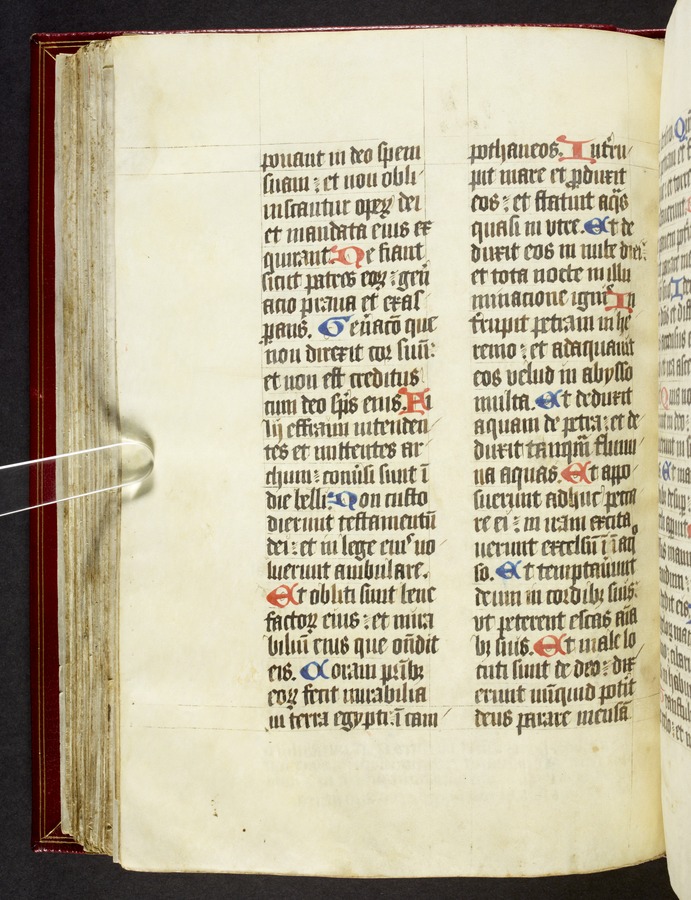 ponant in deo spem
suam : et non obli
viscantur operꝝ dei
et mandata eius ex
quirant. Ne fiant
sicut patres eoꝝ : gen̄
acio praua et exas
ꝑans. Gen̄acō que
non direxit cor suū :
et non est creditus
cum deo sp̄s eius. Fi
lij effraim intenden
tes et mittentes ar
chum : conūsi sunt ī
die belli : Non custo
dierunt testamentū
dei : et in lege eiꝰ no
luerunt ambulare.
Et obliti sunt bene
factoꝝ eius : et mira
biliū eius que ondit
eis. Coram prībꝫ
eoꝝ fecit mirabilia
in terra egypti : ī cam
pothaneos. Intru
pit mare et ꝑduxit
eos : et statuit aq̄s
quasi in vtre. Et de
duxit eos in nube diei :
et tota nocte in illu
minacione ignis. In
trupit petram in he
remo : et adaquauit
eos velud in abysso
multa. Et deduxit
aquam de petra : et de
duxit tanquā flumi
na aquas. Et appo
suerunt adhuc peccā
re ei : in iram excita
uerunt excelsū ī īaq̄
so. Et temptauerūt
deum in cordibꝫ suis :
vt peterent escas aīa
bꝫ suis. Et male lo
cuti sunt de deo : dix
erunt nūquid potīt
deus parare mensā